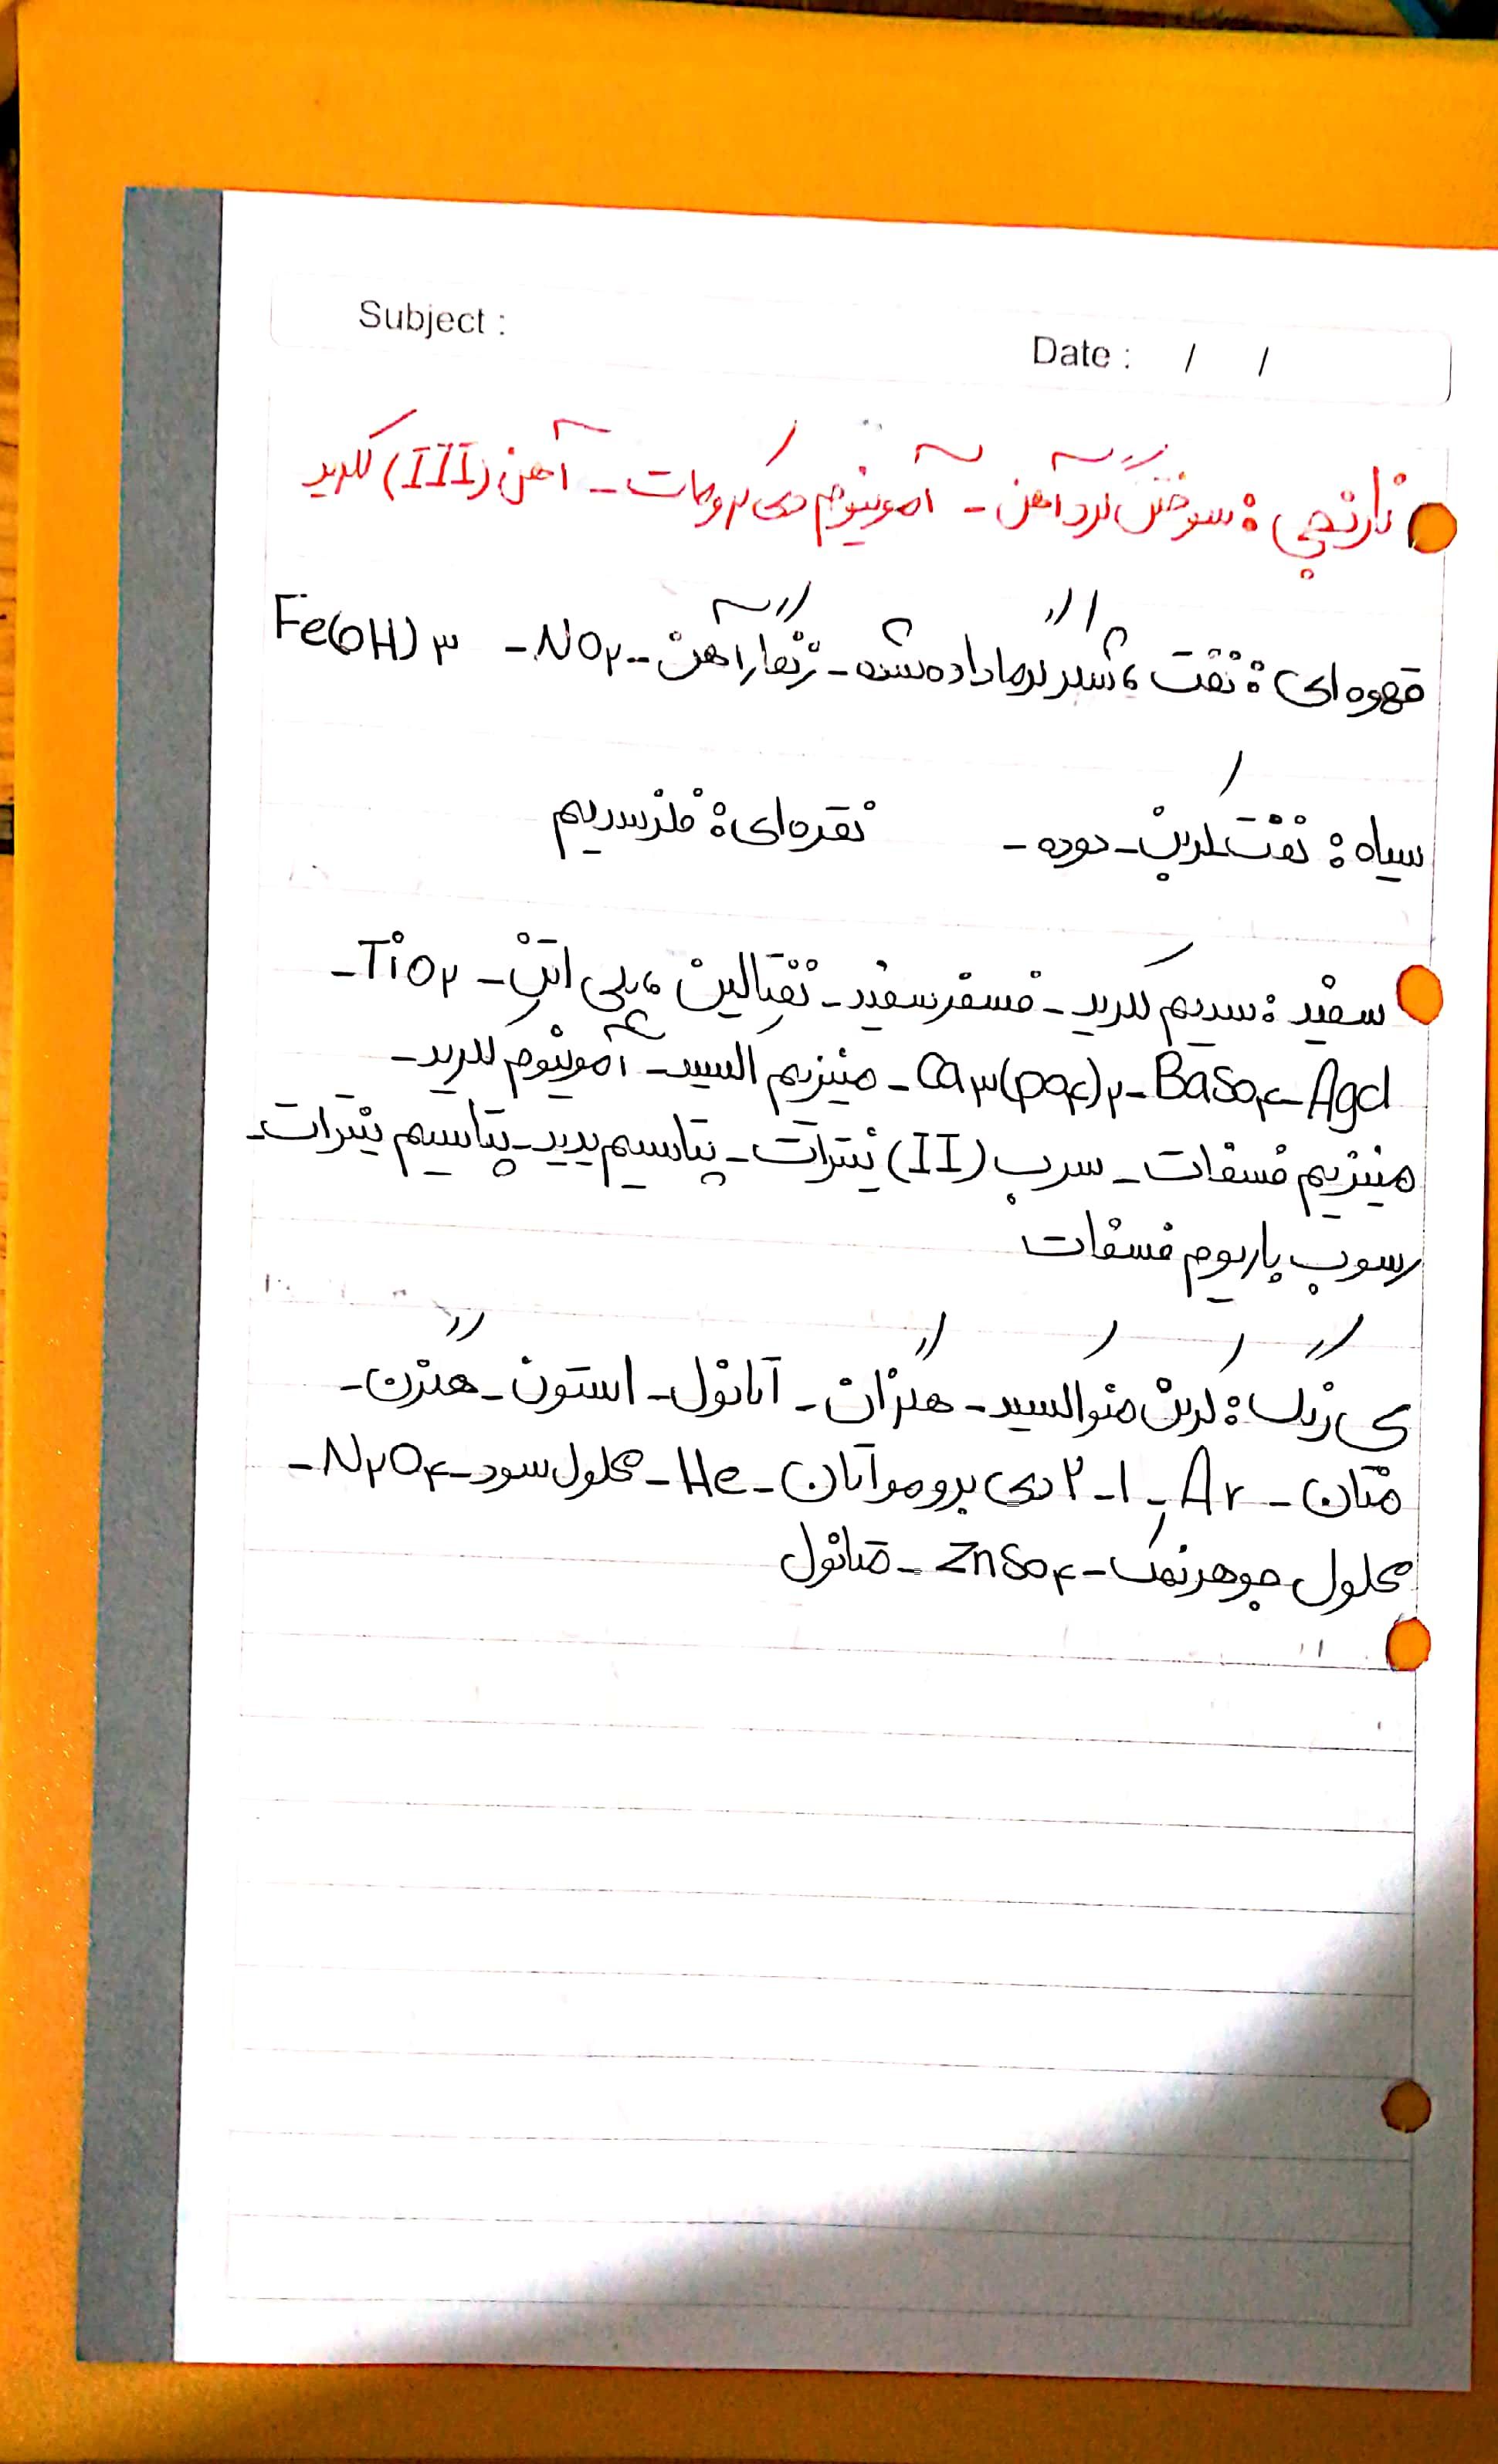 Subject :
Date : / /
نارنجی : سوختن گرد آهن - آمونیوم دی کرومات - آهن (III) کلرید
قهوه‌ای : نفت ، شکر گرما داده شده - زنگار آهن - NO۲ - Fe(OH)۳
سیاه : نفت کربن - دوده - نقره‌ای : فلز سدیم
سفید : سدیم کلرید - فسفر سفید - نفتالین ، پلی اتن - TiO۲ -
AgCl - BaSO۴ - Ca۳(PO۴)۲ - منیزیم اکسید - آمونیوم کلرید -
منیزیم فسفات - سرب (II) نیترات - پتاسیم یدید - پتاسیم نیترات -
رسوب باریوم فسفات
بی رنگ : کربن منواکسید - هگزان - اتانول - استون - هگزن -
متان - Ar - ۱-۲ دی برومو اتان - He - محلول سود - N۲O۴ -
محلول جوهر نمک - ZnSO۴ - متانول